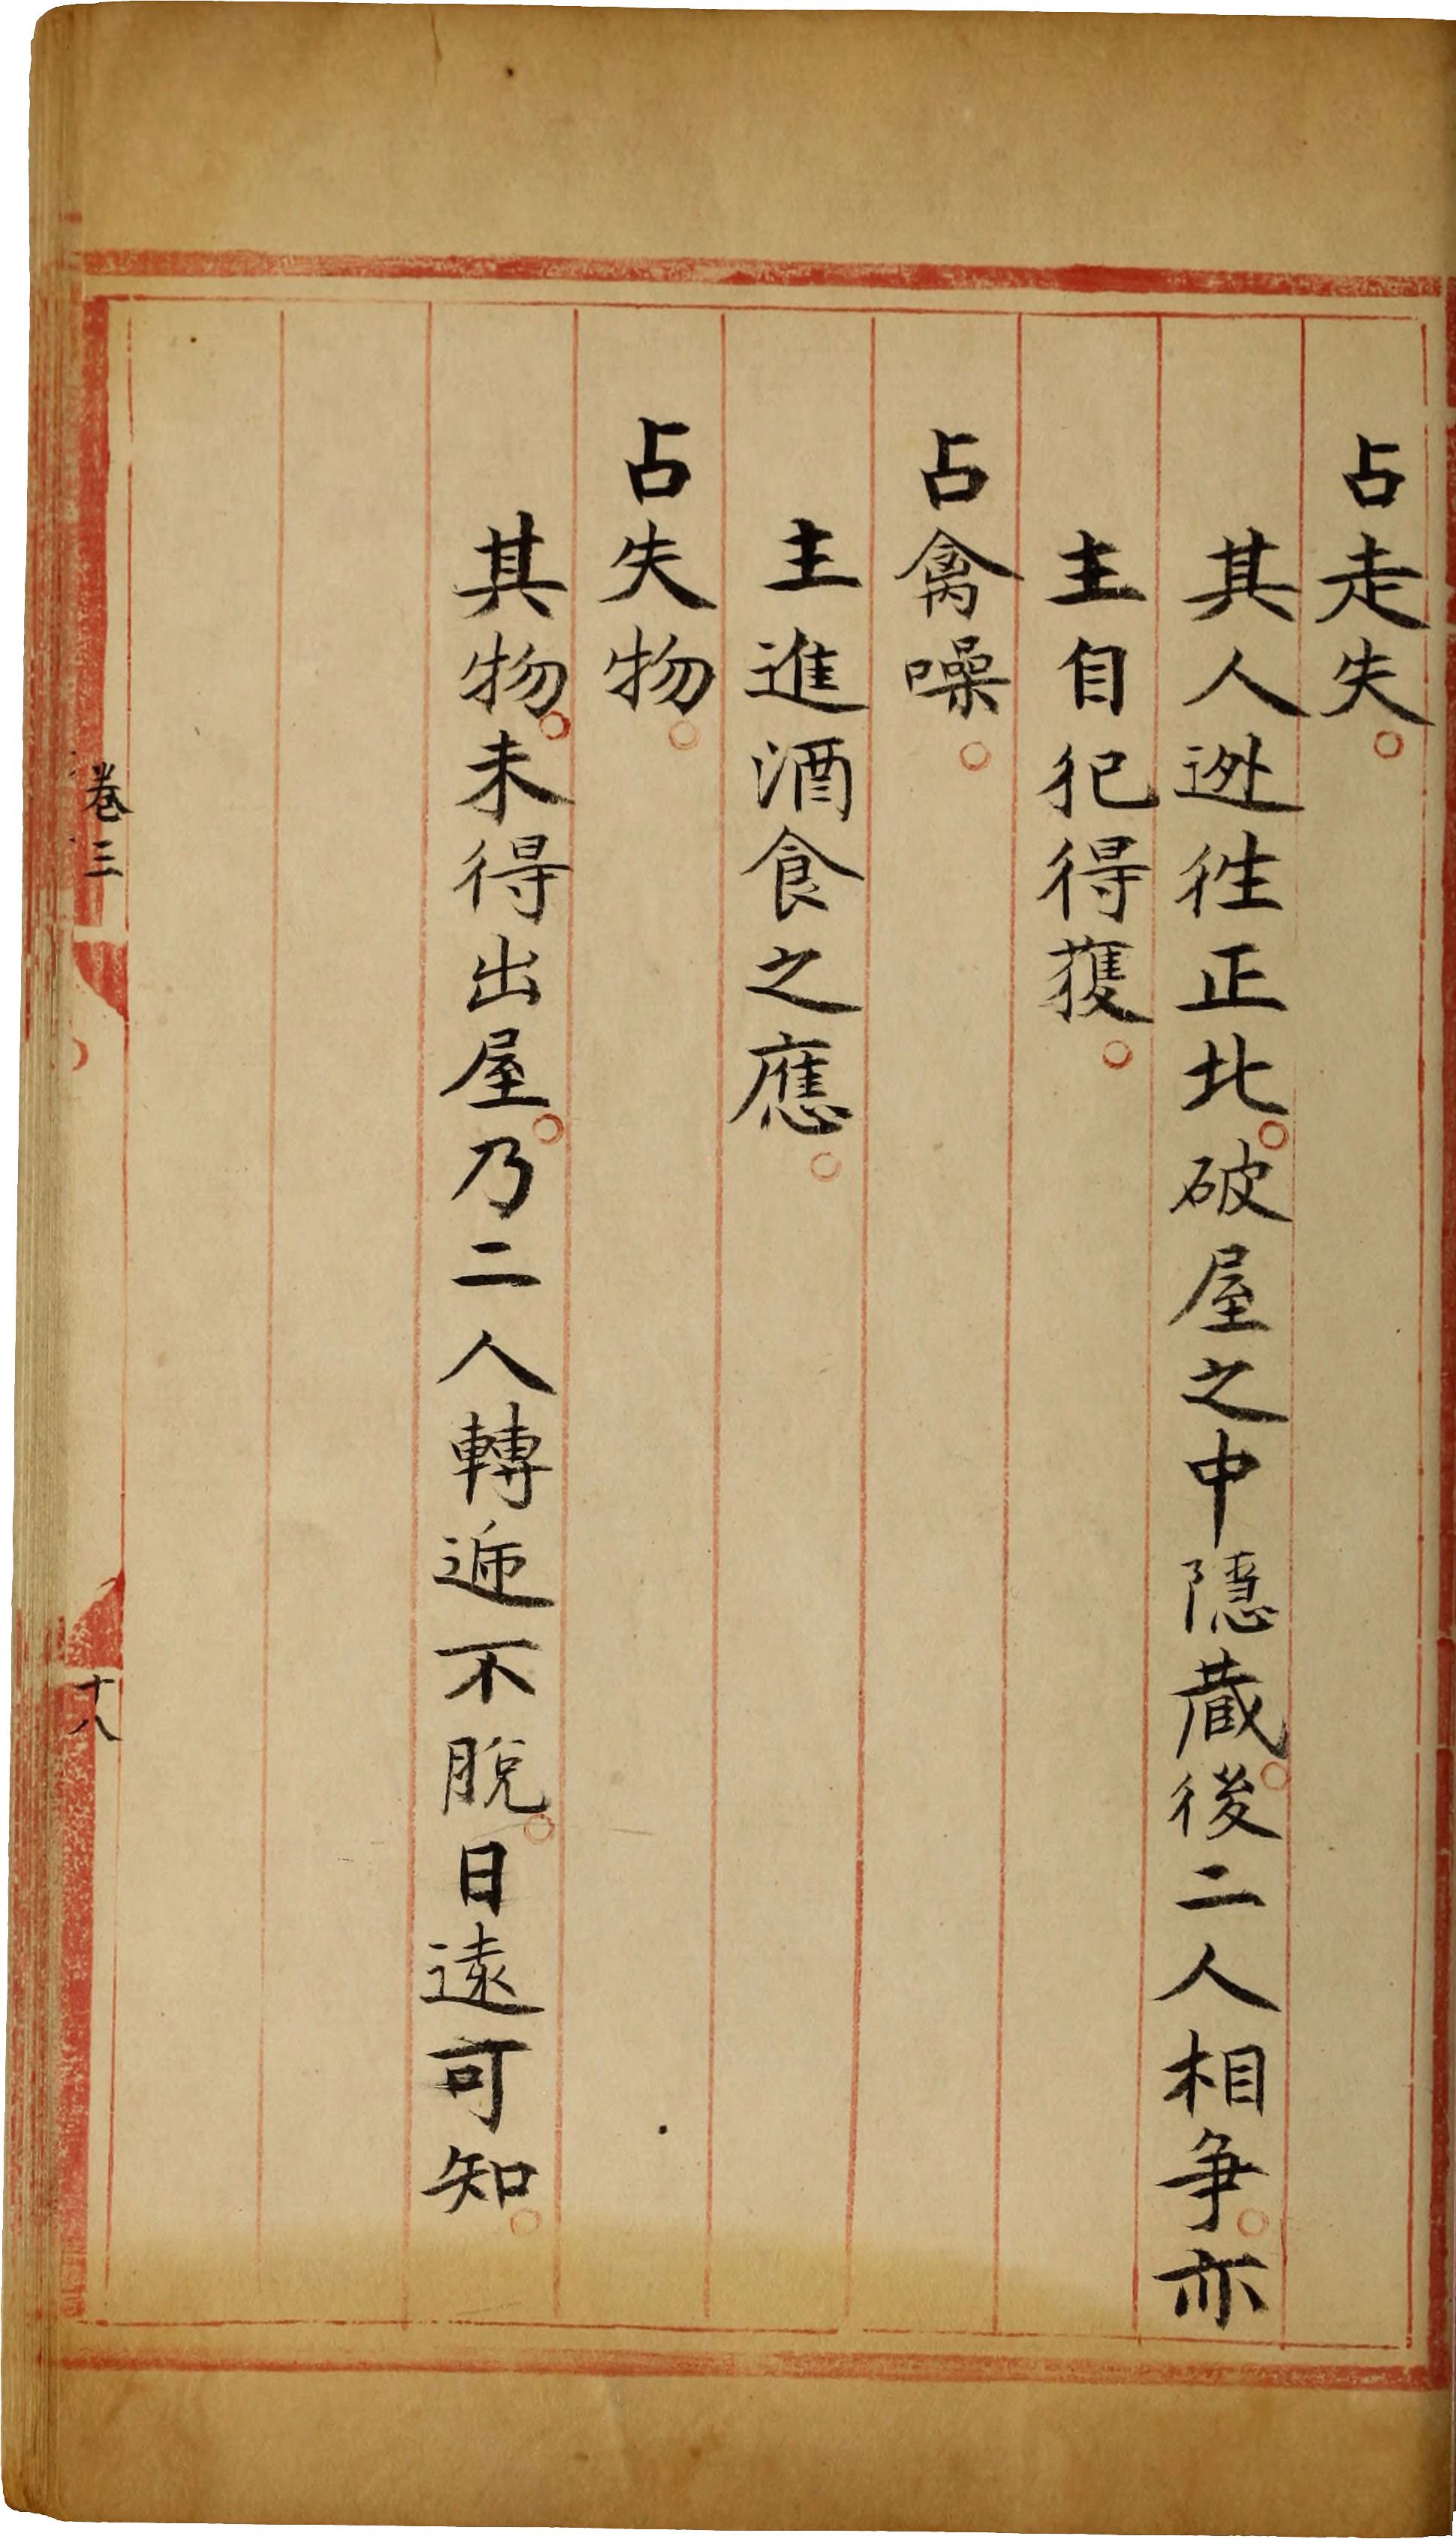 占走失。
其人迯徃正北。破屋之中隱蔵。後二人相爭。亦
主自犯得獲。
占禽噪。
主進酒食之應。
占失物。
其物。未得出屋。乃二人轉逓不脫。日遠可知。
卷三
十八